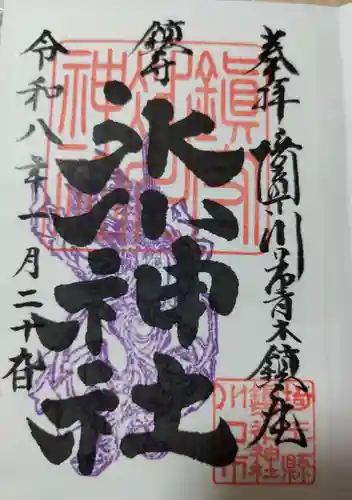 奉拝 埼玉県川口市青木鎮座
鎮守
氷川神社
令和八年一月二十九日
鎮守
氷川
神社
埼玉縣
鎮守氷川神社
川口市